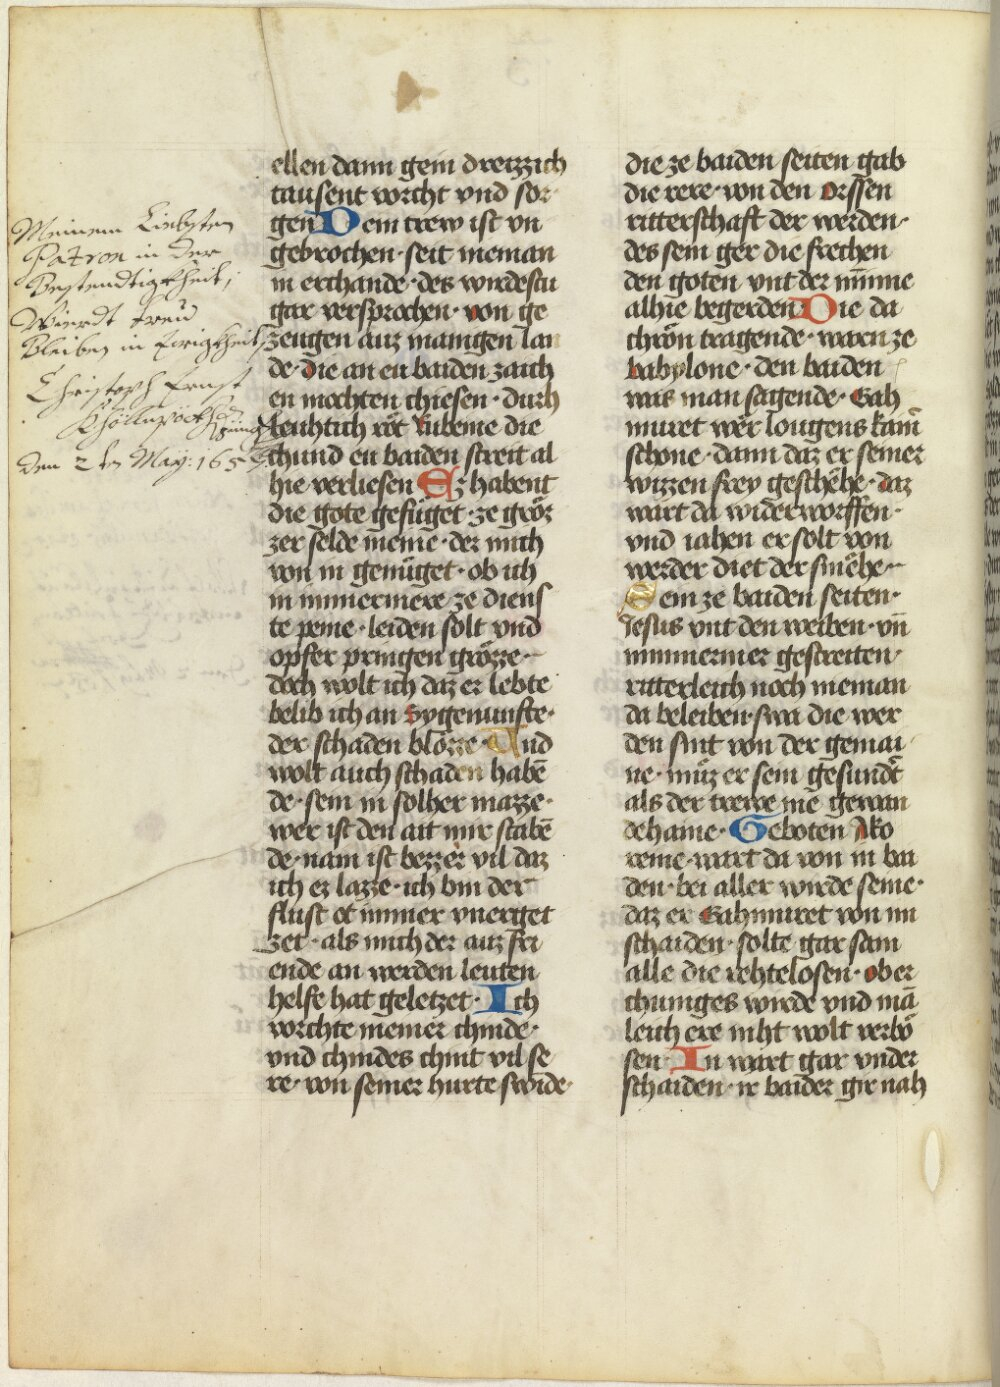 Meinem Liebsten
Patron in der
Bestendigkheit,
Wierdt treu
Bleiben in Ewigkheit
Christoph Ernst
den 2 ten May: 165
ellen dann gein dreizzich
tausent vorcht vnd sor
gen Dein trew ist vn
gebrochen · seit nieman
in erchande · des wirdestu
gar versprochen · von ge
zeugen auz manigen lan
de · die an eu baiden zaich
en mochten chiesen · durh
leuhtich röt rubeine die
chund eu baiden streit al
hie verliesen Ez habent
die gote gefüget · ze gröz
zer selde meine · der mich
von in genüget · ob ich
in immermere ze diens
te peine · leiden solt vnd
opfer pringen grözze ·
doch wolt ich daz er lebte
belib ich an sygenunfte ·
der schaden blözze · Und
wolt auch schaden habē
de · sein in solher mazze ·
wer ist den ait mir stabē
de · nain ist bezzer vil daz
ich ez lazze · ich bin der
flust et immer vnerget
zet · als mich der auz fri
ende an werden leuten
helfe hat geletzet · Ich
vorchte meiner chinde ·
vnd chindes chint vil se
re · von seiner hurte swinde ·
die ze baiden seiten gab
die rere · von den orssen
ritterschaft der werden ·
des sein ger die frechen
den goten vnt der minne
alhie begerden Die da
chrön tragende · waren ze
babylone · den baiden
was man sagende · Gah
muret wer lougens kain
schone · dann daz er seiner
wizzen frey geschehe · daz
wart da widerworffen ·
vnd iahen er solt von
werder diet der smehe ·
Sein ze baiden seiten ·
Jesus vnt den weiben · vn̄
nimmermer gestreiten ·
ritterleich noch nieman
da beleiben · swa die wer
den sint von der gemai
ne · müz er sein gesundert
als der trewe nie gewan
dehaine · Geboten Ako
reine · wart da von in bai
den · bei aller wirde seine ·
daz er Gahmuret von im
schaiden · solte gar sam
alle die rehtelosen · ober
chuniges wirde vnd mā
leich ere niht wolt verbö
sen · In wart gar vnder
schaiden · ir baider gir nah